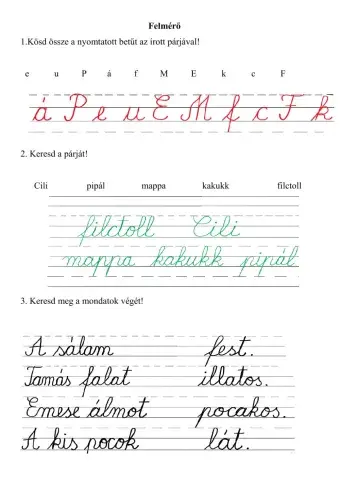 Felmérő
1.Kösd össze a nyomtatott betűt az írott párjával!
e u P á f M E k c F
á P e u E M f c F k
2. Keresd a párját!
Cili pipál mappa kakukk filctoll
filctoll Cili
mappa kakukk pipál
3. Keresd meg a mondatok végét!
A salam fest.
Tamás falat illatos.
Emese álmot pocakos.
A kis pocok lát.